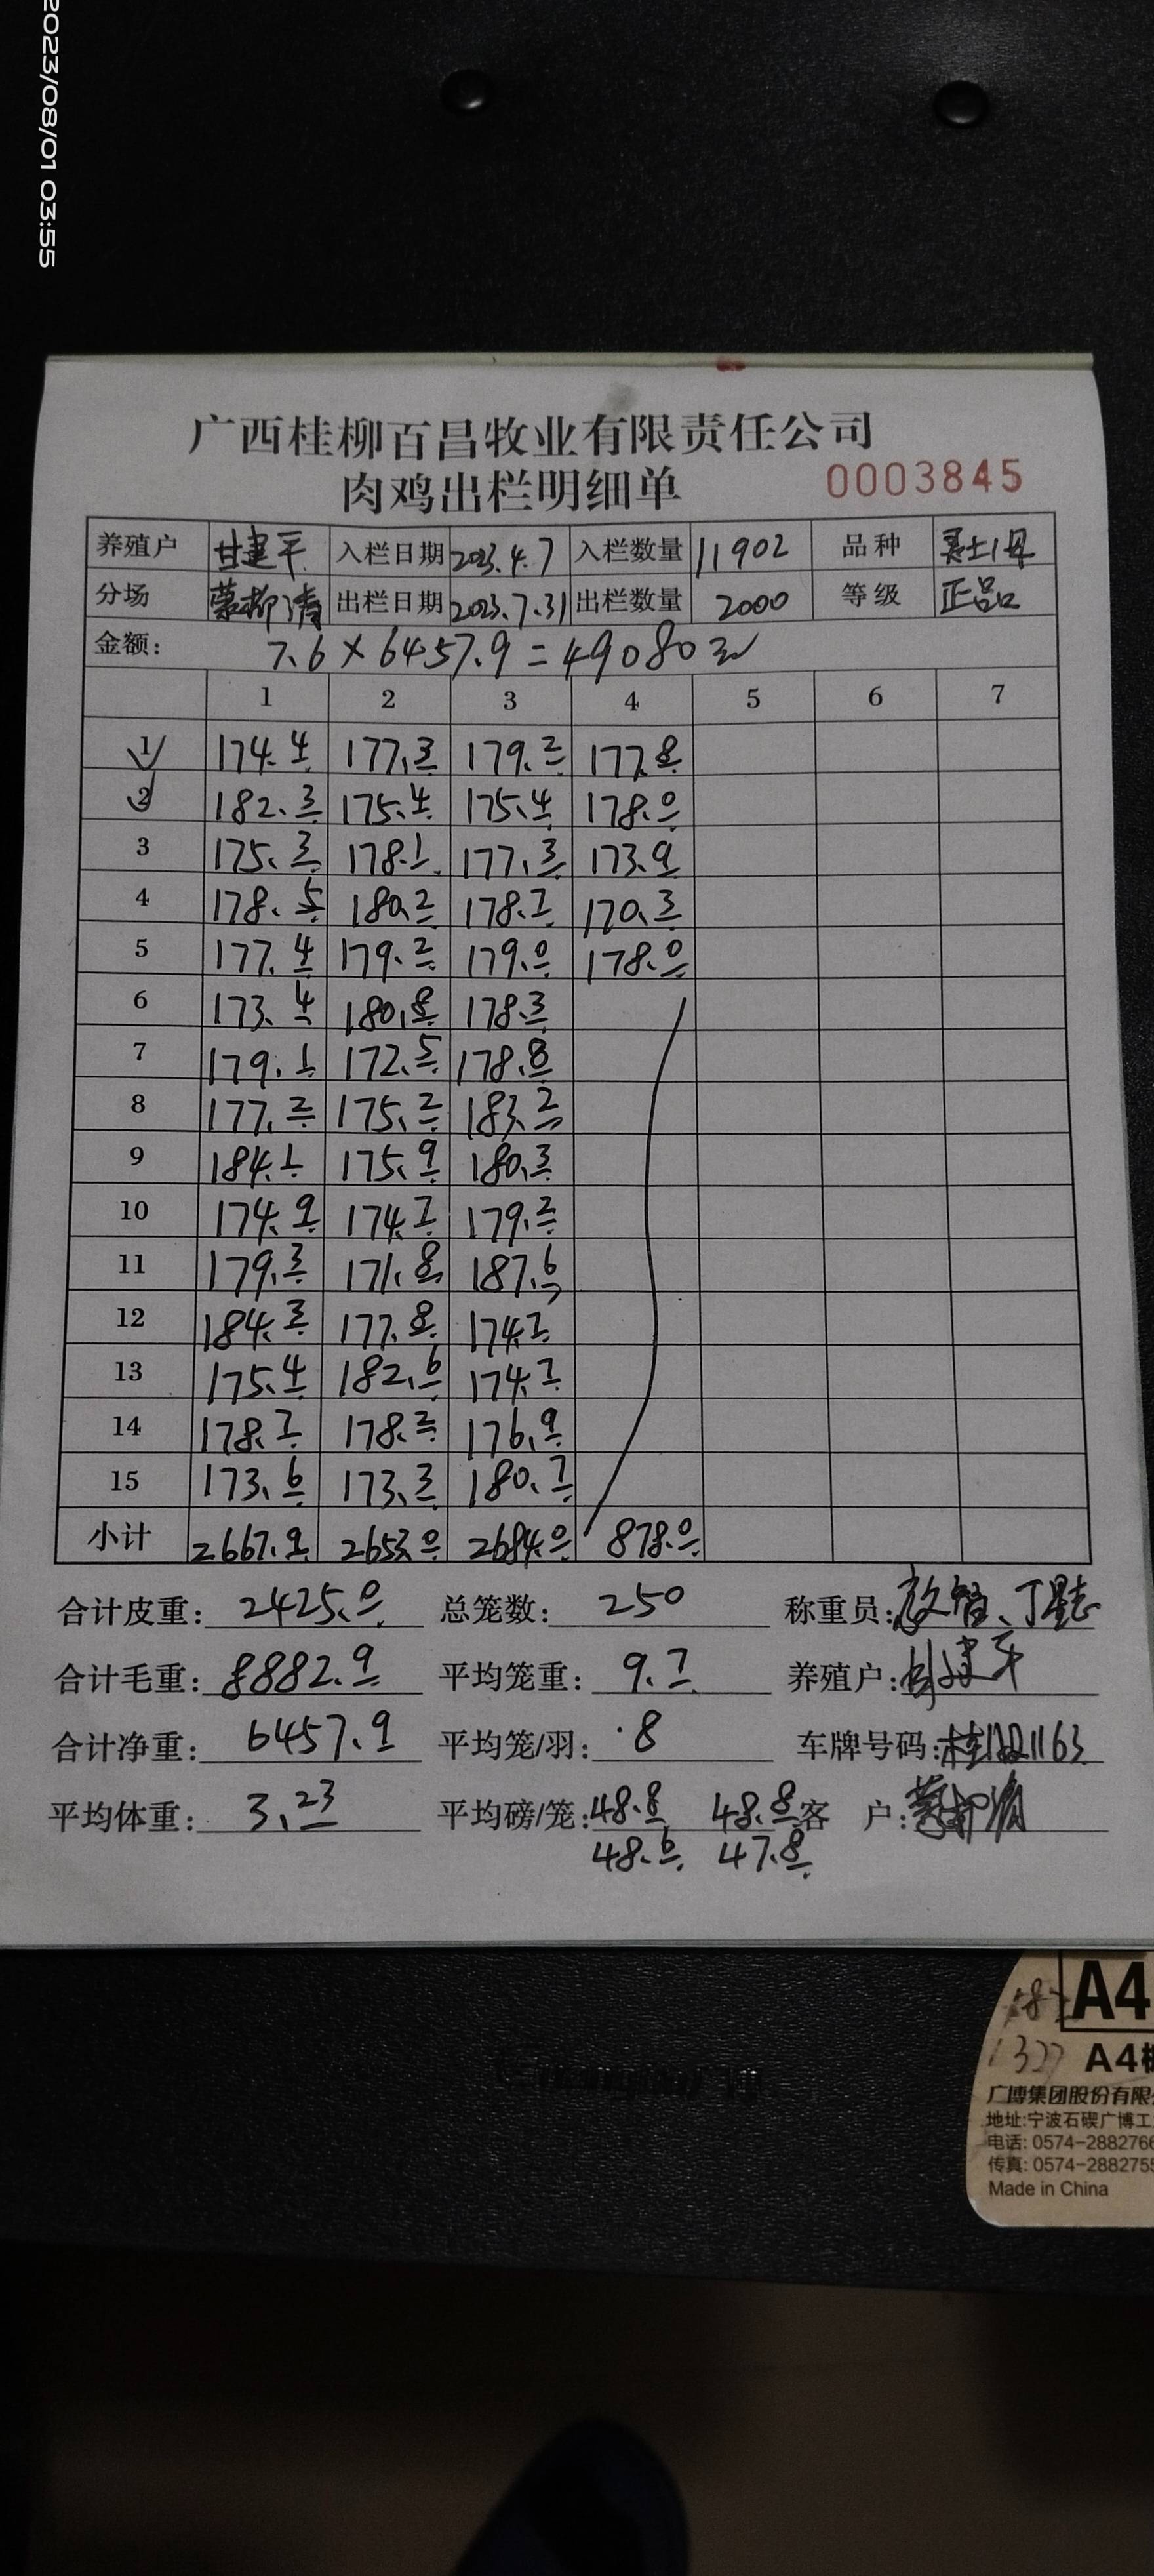 2023/08/01 03:55
广西桂柳百昌牧业有限责任公司
肉鸡出栏明细单 0003845
养殖户 甘建平 入栏日期 2023.4.7 入栏数量 11902 品种
分场 蒙柳清 出栏日期 2023.7.31 出栏数量 2000 等级 正品
金额: 7.6×6457.9=49080元
1 2 3 4 5 6 7
1 174.4 177.3 179.2 177.8
2 182.3 175.4 175.4 178.0
3 175.3 178.1 177.3 173.9
4 178.5 180.2 178.7 170.3
5 177.4 179.2 179.0 178.0
6 173.4 180.8 178.3
7 179.1 172.5 178.8
8 177.2 175.2 183.2
9 184.1 175.9 180.3
10 174.9 174.7 179.2
11 179.3 171.8 187.6
12 184.3 177.8 174.7
13 175.4 182.6 174.7
14 178.7 178.2 176.9
15 173.6 173.3 180.7
小计 2667.9 2653.0 2684.0 878.0
合计皮重: 2425.0 总笼数: 250 称重员:
合计毛重: 8882.9 平均笼重: 9.7 养殖户: 甘建平
合计净重: 6457.9 平均笼/羽: 8 车牌号码:
平均体重: 3.23 平均磅/笼: 48.8 48.8 客 户: 蒙柳清
48.6 47.8
A4
1327 A4
广博集团股份有限
地址:宁波石碶广博工
电话: 0574-2882766
传真: 0574-2882755
Made in China